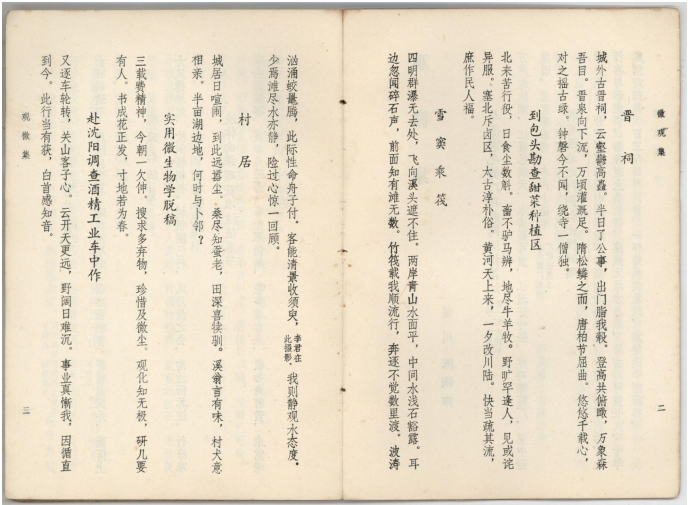 微观集
晋祠
城外古晋祠，云壑郁高矗。半日了公事，出门脂我毂。登高共俯瞰，万象森
吾目。晋泉向下流，万顷灌溉足。隋松鳞之而，唐柏节屈曲。悠悠千载心，
对之褔古绿。钟磬今不闻，绕寺一僧独。
到包头勘查甜菜种植区
北来苦行役，日食尘数斛。畜不驴马辨，地尽牛羊牧。野旷罕逢人，见或诧
异服。塞北斥卤区，太古淳朴俗。黄河天上来，一夕改川陆。快当疏其流，
庶作民人福。
雪窦乘筏
四明群瀑无去处，飞向溪头遮不住。两岸青山水面平，中间水浅石豁露。耳
边忽闻碎石声，前面知有滩无数。竹筏载我顺流行，奔逐不觉数里渡。波涛
二
汹涌蛟鼍腾，此际性命舟子付。客能清景收须臾，李君在此摄影。我则静观水态度。
少焉滩尽水亦静，险过心惊一回顾。
村居
城居日喧闹，到此远嚣尘。桑尽知蚕老，田深喜犊驯。溪翁言有味，村犬意
相亲。半亩湖边地，何时与卜邻？
实用微生物学脱稿
三载费精神，今朝一欠伸。搜求多弃物，珍惜及微尘。观化知无极，研几要
有人。书成花正发，寸地若为春。
赴沈阳调查酒精工业车中作
又逐车轮转，关山客子心。云开天更远，野阔日难沉。事业真惭我，因循直
到今。此行当有获，白首感知音。
观微集
三